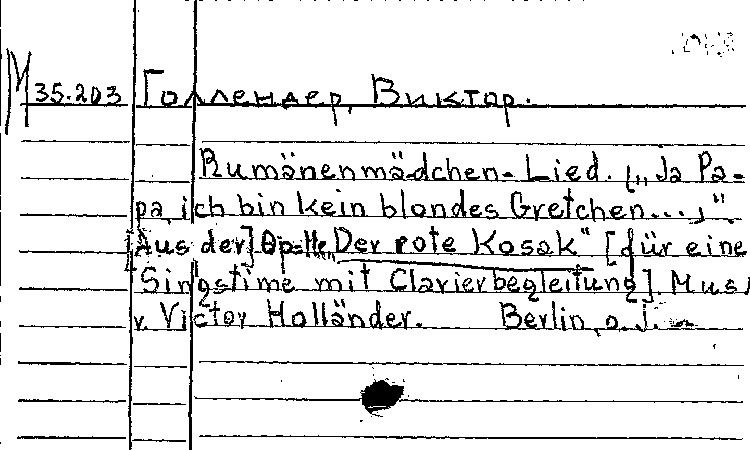 М 35.203 Голлендер, Виктор.
Rumänenmädchen-Lied. („Ja Pa-
pa, ich bin kein blondes Gretchen...„”
[Aus der] Op-tte „Der rote Kosak“ [für eine
Singstime mit Clavierbegleitung]. Mus.
v. Victor Holländer. Berlin, o. J.